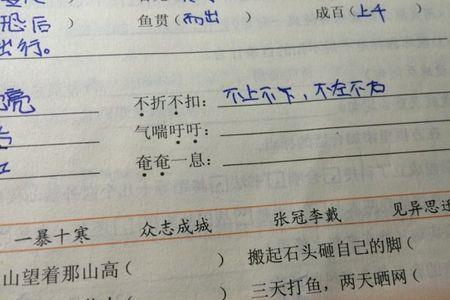 恐后 鱼贯（而出） 成百（上千
出行。
亮 不折不扣：不上不下，不左不右
气喘吁吁：
奄奄一息：
一暴十寒 众志成城 张冠李戴 见异思迁
山望着那山高（ ） 搬起石头砸自己的脚（
三天打鱼，两天晒网（